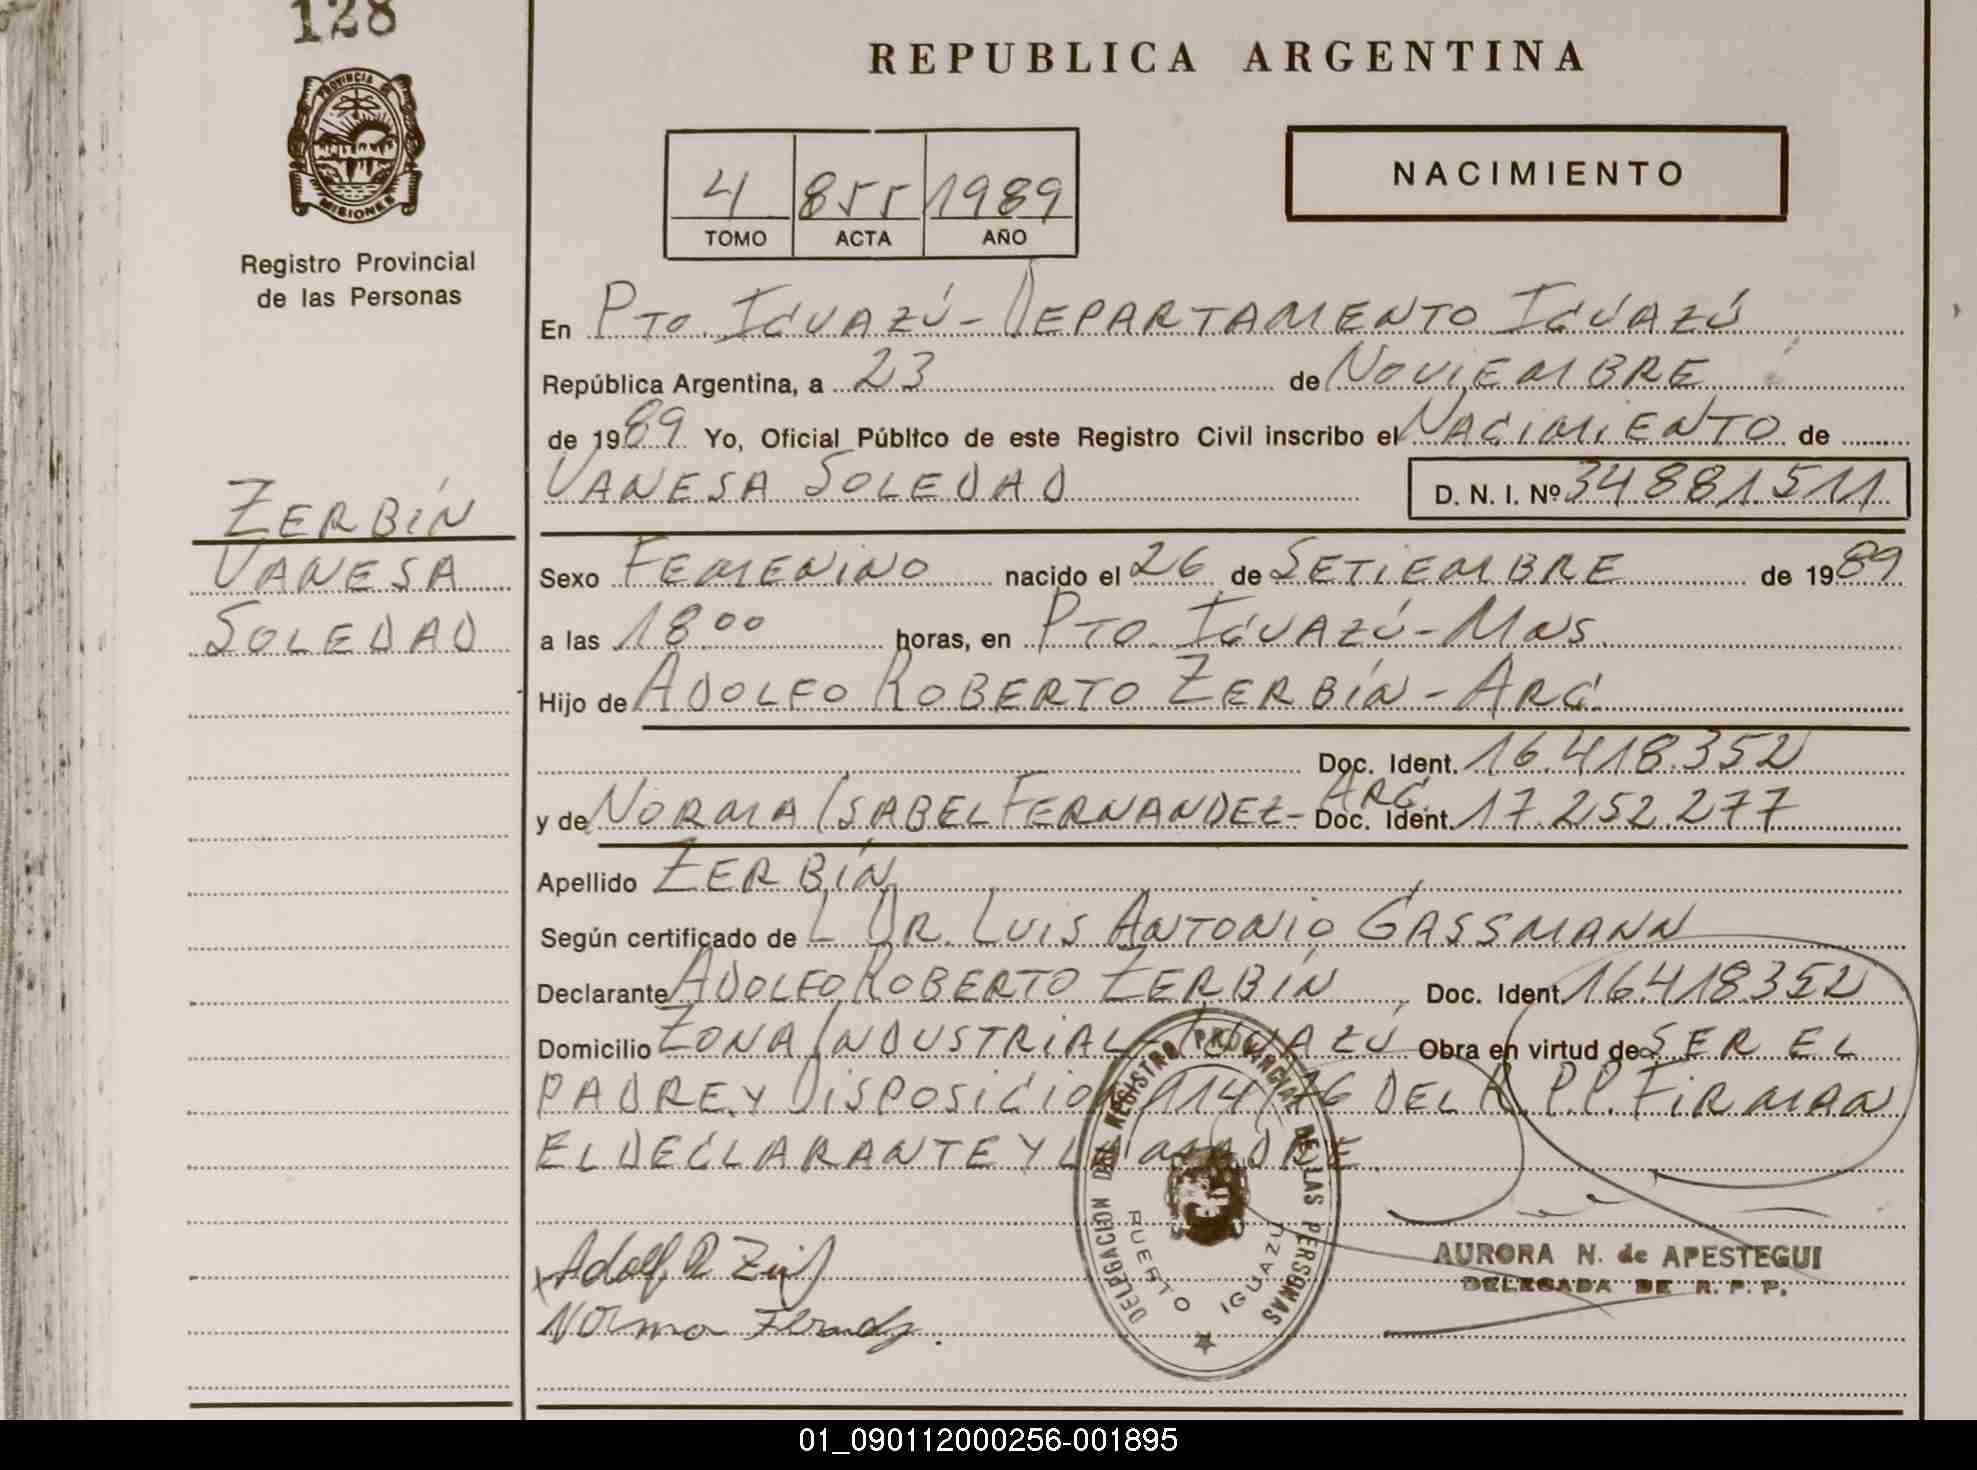 128
REPUBLICA ARGENTINA
PROVINCIA DE
MISIONES
Registro Provincial
de las Personas
4 855 1989
TOMO ACTA AÑO
NACIMIENTO
En PTO. IGUAZÚ - DEPARTAMENTO IGUAZÚ
República Argentina, a 23 de NOVIEMBRE
de 1989 Yo, Oficial Público de este Registro Civil inscribo el NACIMIENTO de
VANESA SOLEDAD D. N. I. Nº 34881511
ZERBÍN
VANESA
SOLEDAD
Sexo FEMENINO nacido el 26 de SETIEMBRE de 1989
a las 18 00 horas, en PTO. IGUAZÚ - MNS.
Hijo de ADOLFO ROBERTO ZERBÍN - ARG.
Doc. Ident. 16.418.352
y de NORMA ISABEL FERNANDEZ - ARG. Doc. Ident. 17.252.277
Apellido ZERBÍN
Según certificado de L DR. LUIS ANTONIO GASSMANN
Declarante ADOLFO ROBERTO ZERBÍN Doc. Ident. 16418352
Domicilio ZONA INDUSTRIAL - IGUAZÚ Obra en virtud de SER EL
PADRE Y DISPOSICION 114/76 DEL R.P.P. FIRMAN
EL DECLARANTE Y LA MADRE.
DELEGACION DEL REGISTRO PROVINCIAL DE LAS PERSONAS
PUERTO IGUAZU
Adolf. R
Norma
AURORA N. de APESTEGUI
DELEGADA DE R. P. P.
01_090112000256-001895